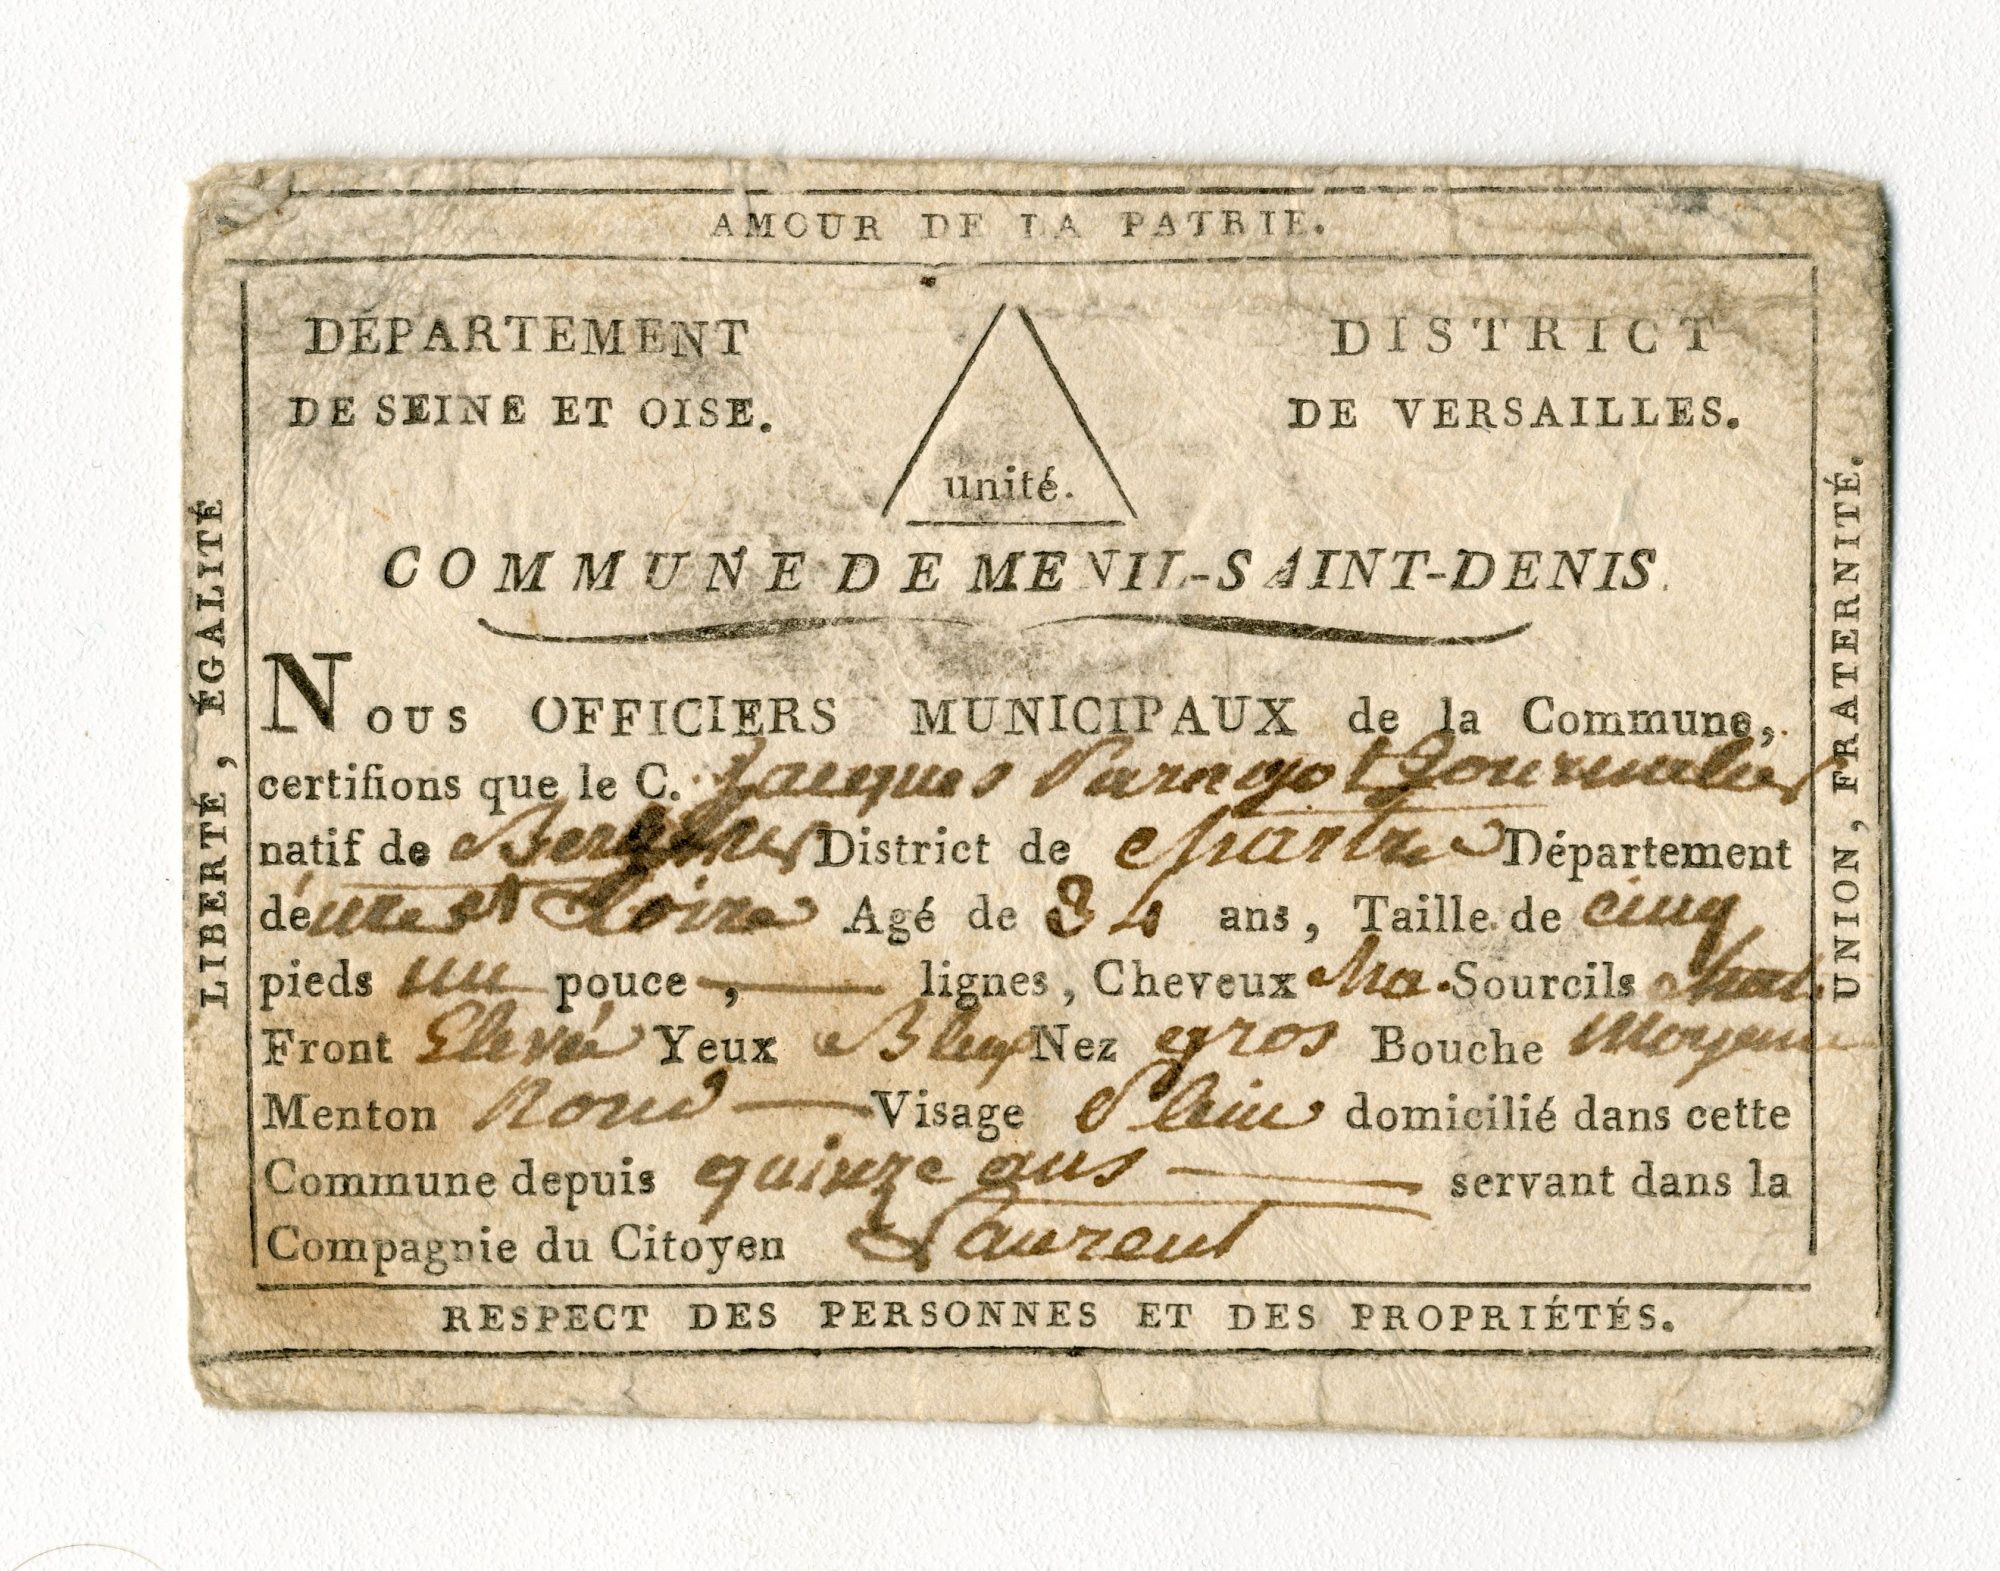 AMOUR DE LA PATRIE.
DÉPARTEMENT
DE SEINE ET OISE.
unité.
DISTRICT
DE VERSAILLES.
COMMUNE DE MENIL-SAINT-DENIS.
LIBERTÉ, ÉGALITÉ
Nous OFFICIERS MUNICIPAUX de la Commune,
certifions que le C. Jacques Paragot
natif de District de chartre Département
de ure et Loire Agé de 34 ans, Taille de cinq
pieds un pouce, lignes, Cheveux cha. Sourcils chat.
Front Elevée Yeux Bleu Nez gros Bouche Moyenne
Menton Rond Visage Plein domicilié dans cette
Commune depuis quinze ans servant dans la
Compagnie du Citoyen Laurent
UNION, FRATERNITÉ.
RESPECT DES PERSONNES ET DES PROPRIÉTÉS.